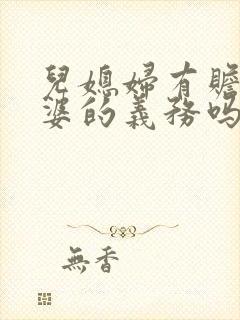 兒媳婦有贍
婆的義務嗎
無香